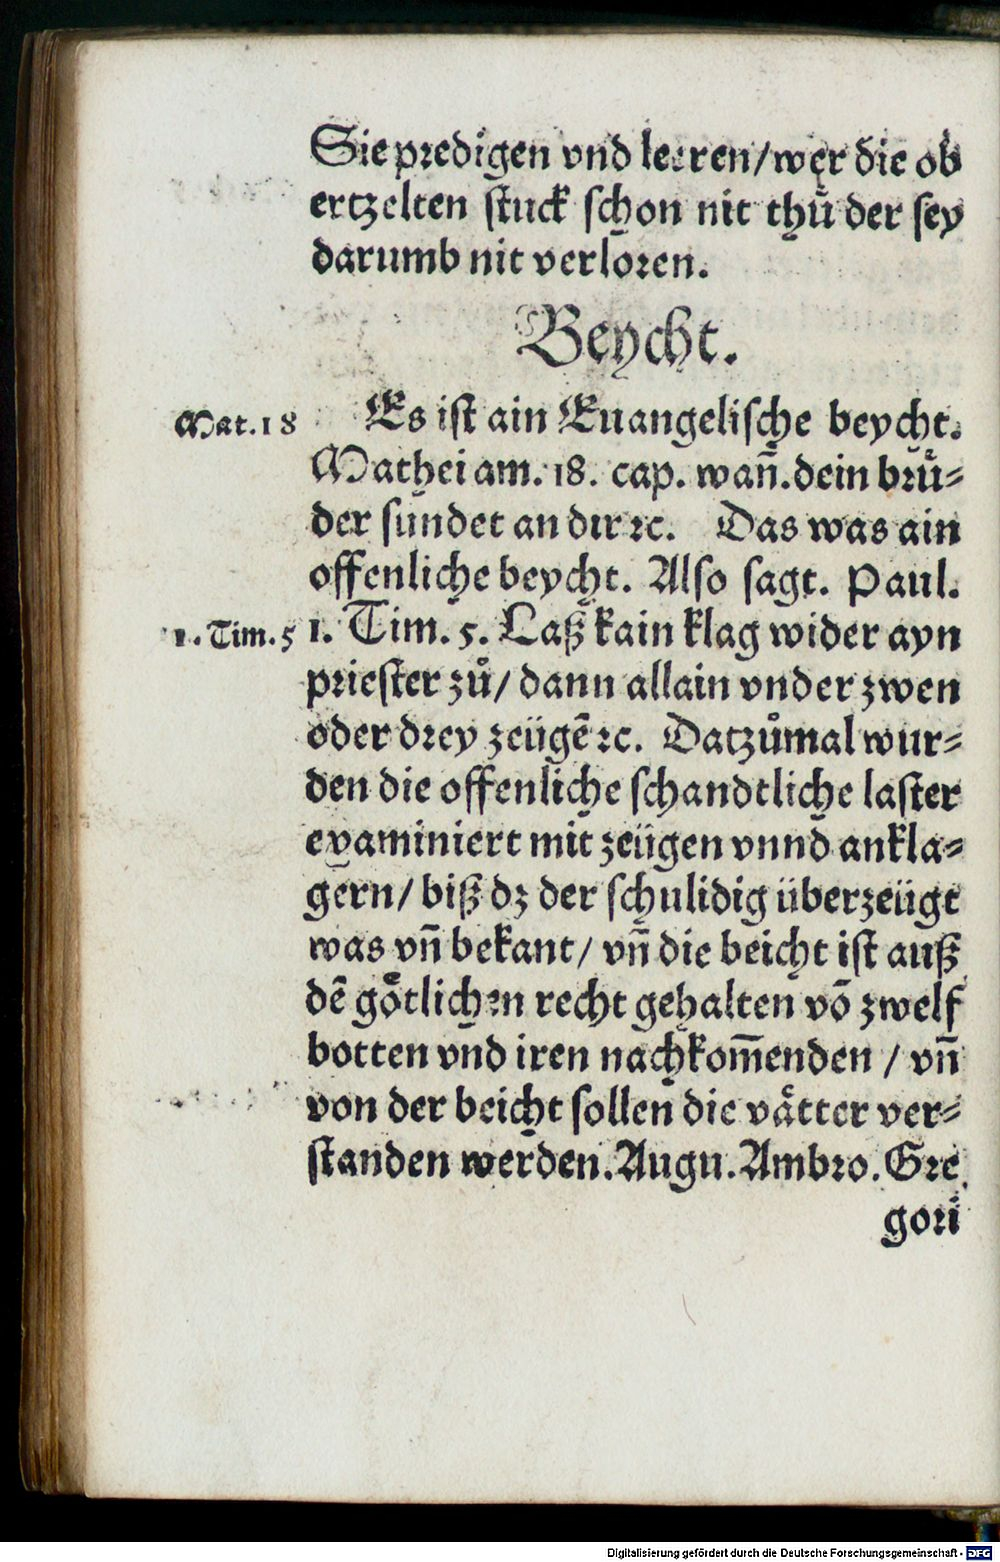 Sie predigen vnd leeren/wer die ob
ertzelten stuck schon nit thuͦ der sey
darumb nit verloren.
Beycht.
Mat.18
Es ist ain Euangelische beycht.
Mathei am. 18. cap. wañ.dein bruͦ-
der sundet an dir ꝛc. Das was ain
offenliche beycht. Also sagt. Paul.
1. Tim. 5
1. Tim. 5. Laß kain klag wider ayn
priester zuͦ/ dann allain vnder zwen
oder drey zeügē ꝛc. Datzuͦmal wur-
den die offenliche schandtliche laster
examiniert mit zeügen vnnd ankla-
gern/ biß dz der schulidig überzeügt
was vn̄ bekant/ vn̄ die beicht ist auß
dē goͤtlichen recht gehalten vō zwelf
botten vnd iren nachkom̄enden / vn̄
von der beicht sollen die vaͤtter ver-
standen werden. Augu. Ambro. Gre
gori
Digitalisierung gefördert durch die Deutsche Forschungsgemeinschaft - DFG